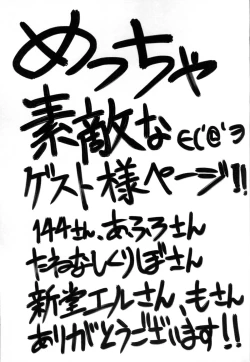 めっちゃ
素敵な ∈(´@`∋
ゲスト様ページ!!
144さん、あふろさん
たねなしくりぼさん
新堂エルさん、もさん
ありがとうございます!!